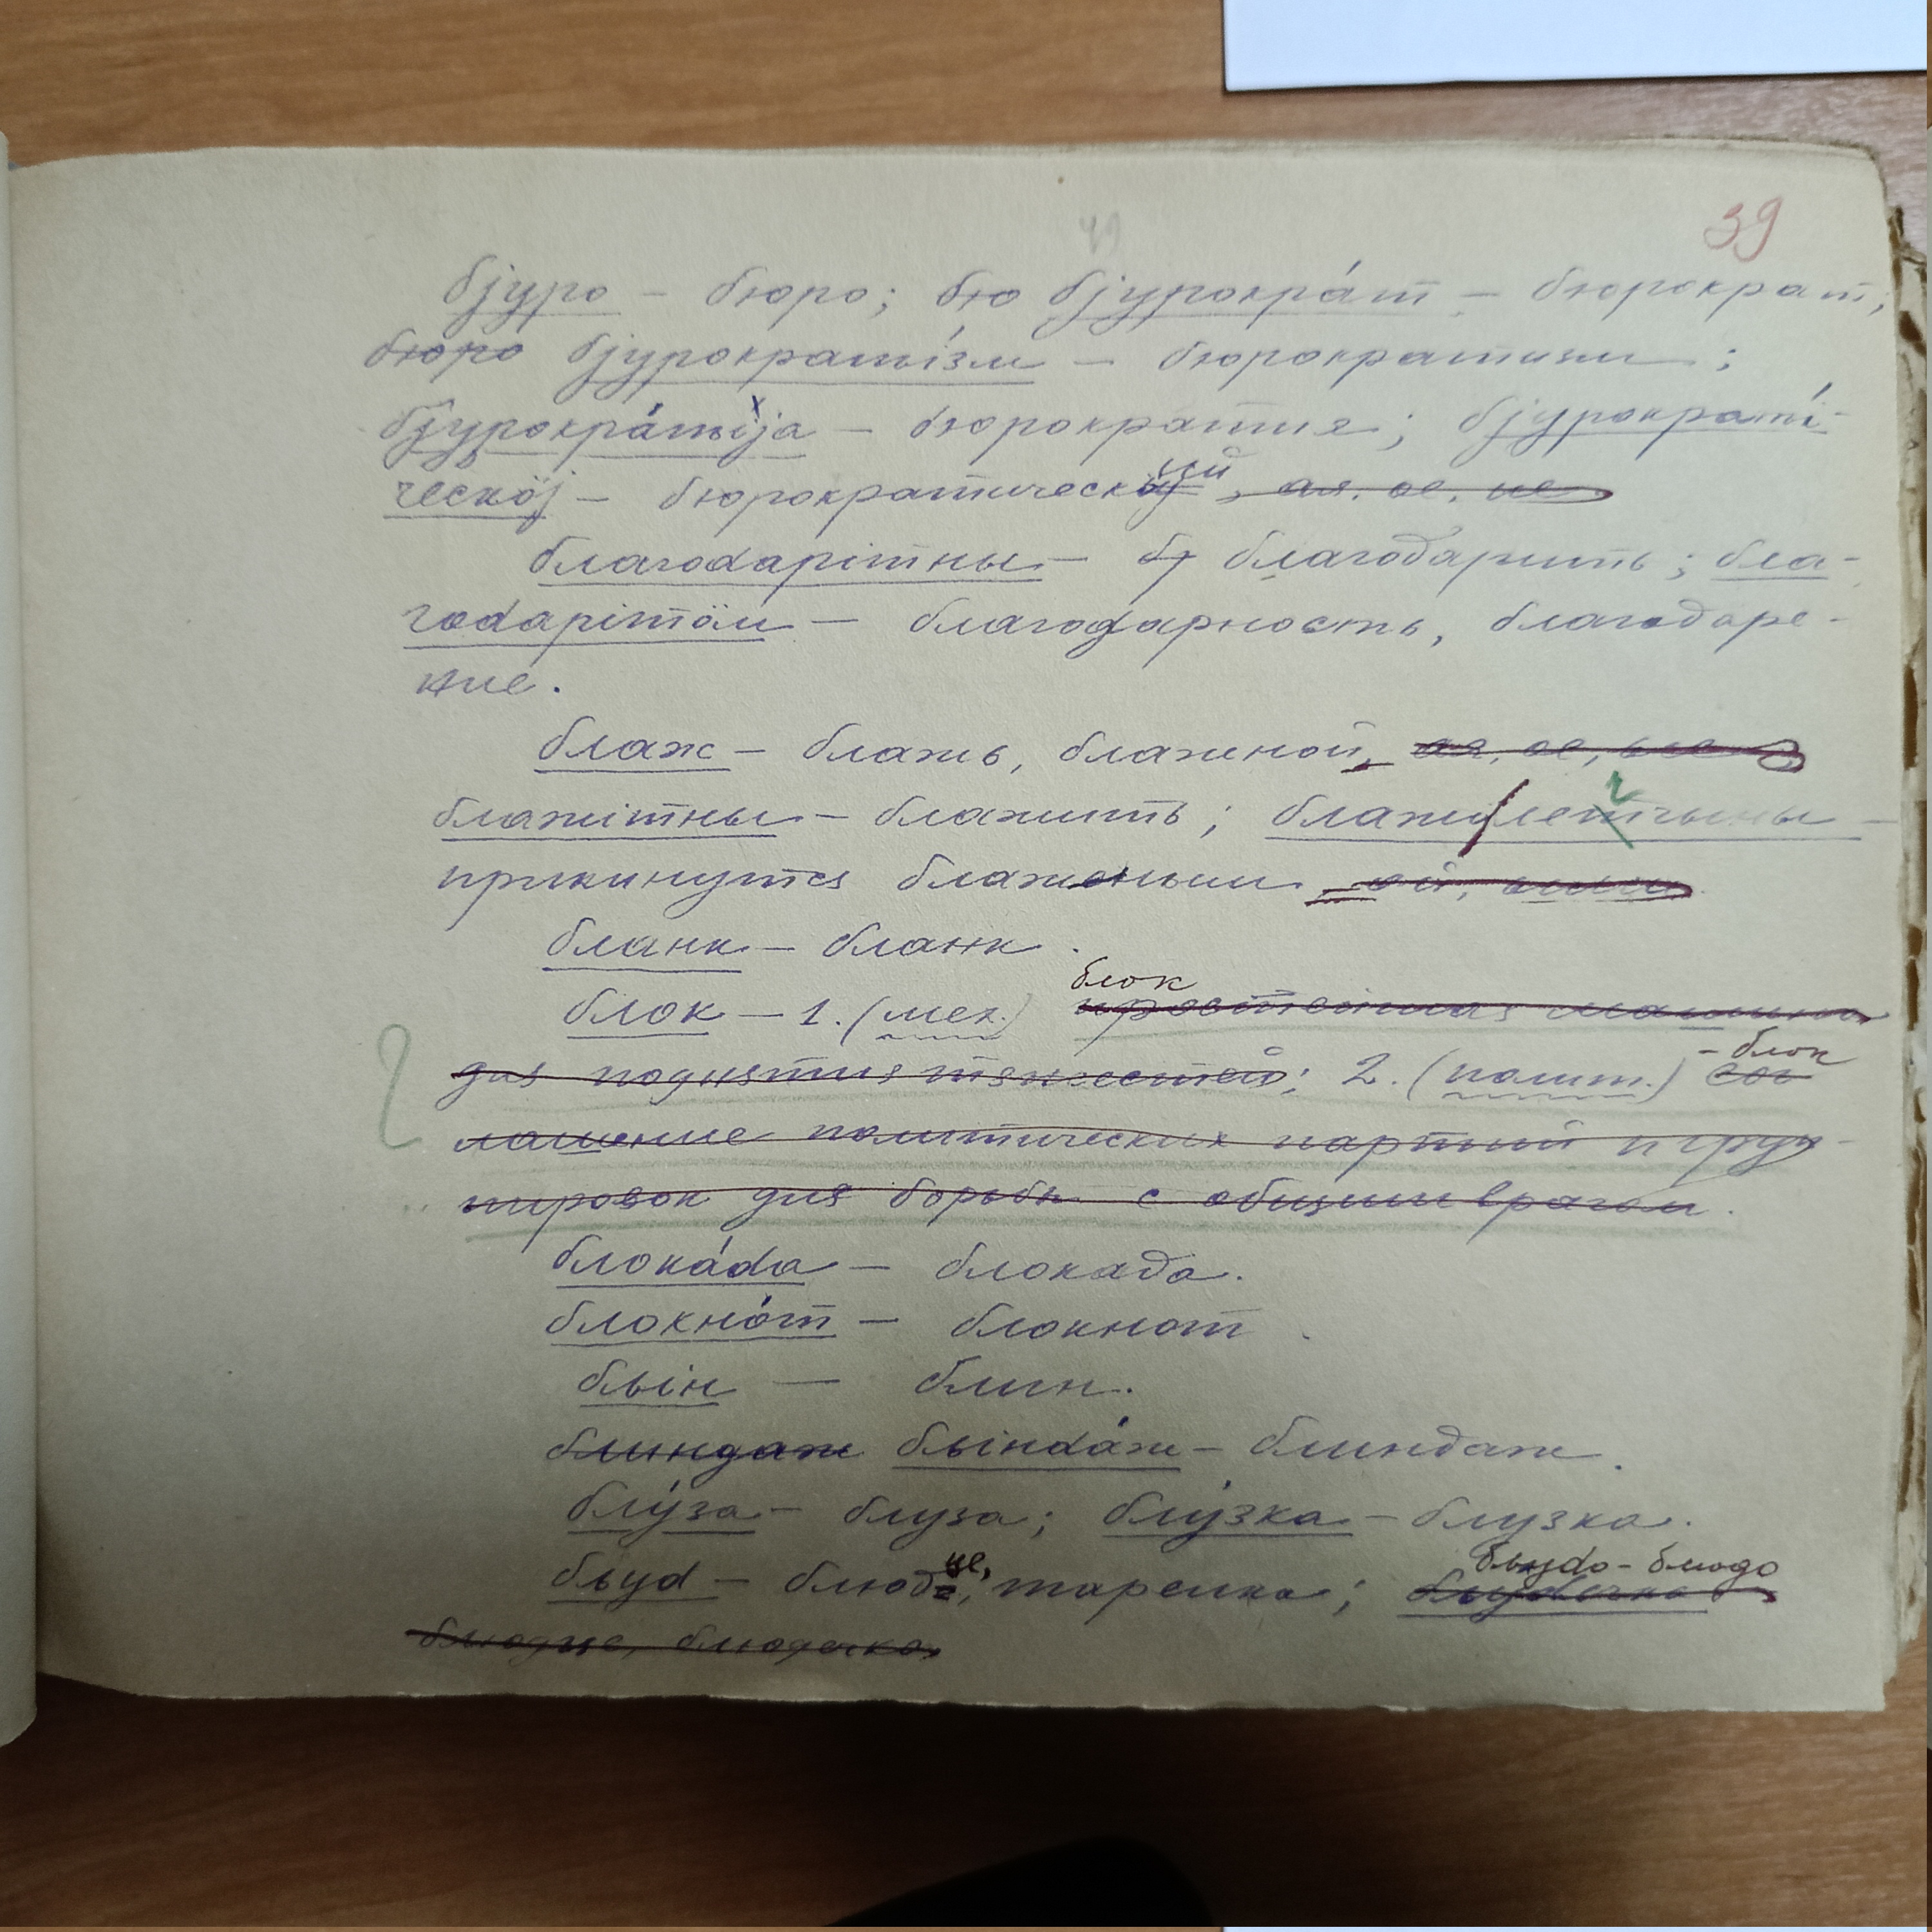 39
49
бjуро – бюро; бю бjурокра́т – бюрократ,
бюро бjурократі́зм – бюрократизм;
бjурокра́тіја – бюрократия; бjурократі́-
ческöј – бюрократический, ая, ое, ие
благоdарітны – бл благодарить; бла-
гоdарітöм – благодарность, благодаре-
ние.
блаж – блажь, блажной, ая, ое, ые
блажітны – блажить;
прикинутся блаженным, ой,
бланк – бланк.
блок
блок – 1. (мех.) простейшая машина
– блок
для поднятия тяжестей; 2. (полит.) сог
лашение политических партий и груп-
пировок для борьбы с общим врагом.
блока́dа – блокада.
блокно́т – блокнот.
бљін – блин.
блиндаж бљінdа́ж – блиндаж.
блу́за – блуза; блу́зка – блузка.
бљуdо – блюдо
бљуd – блюдце, тарелка;
блюдце, блюдечко